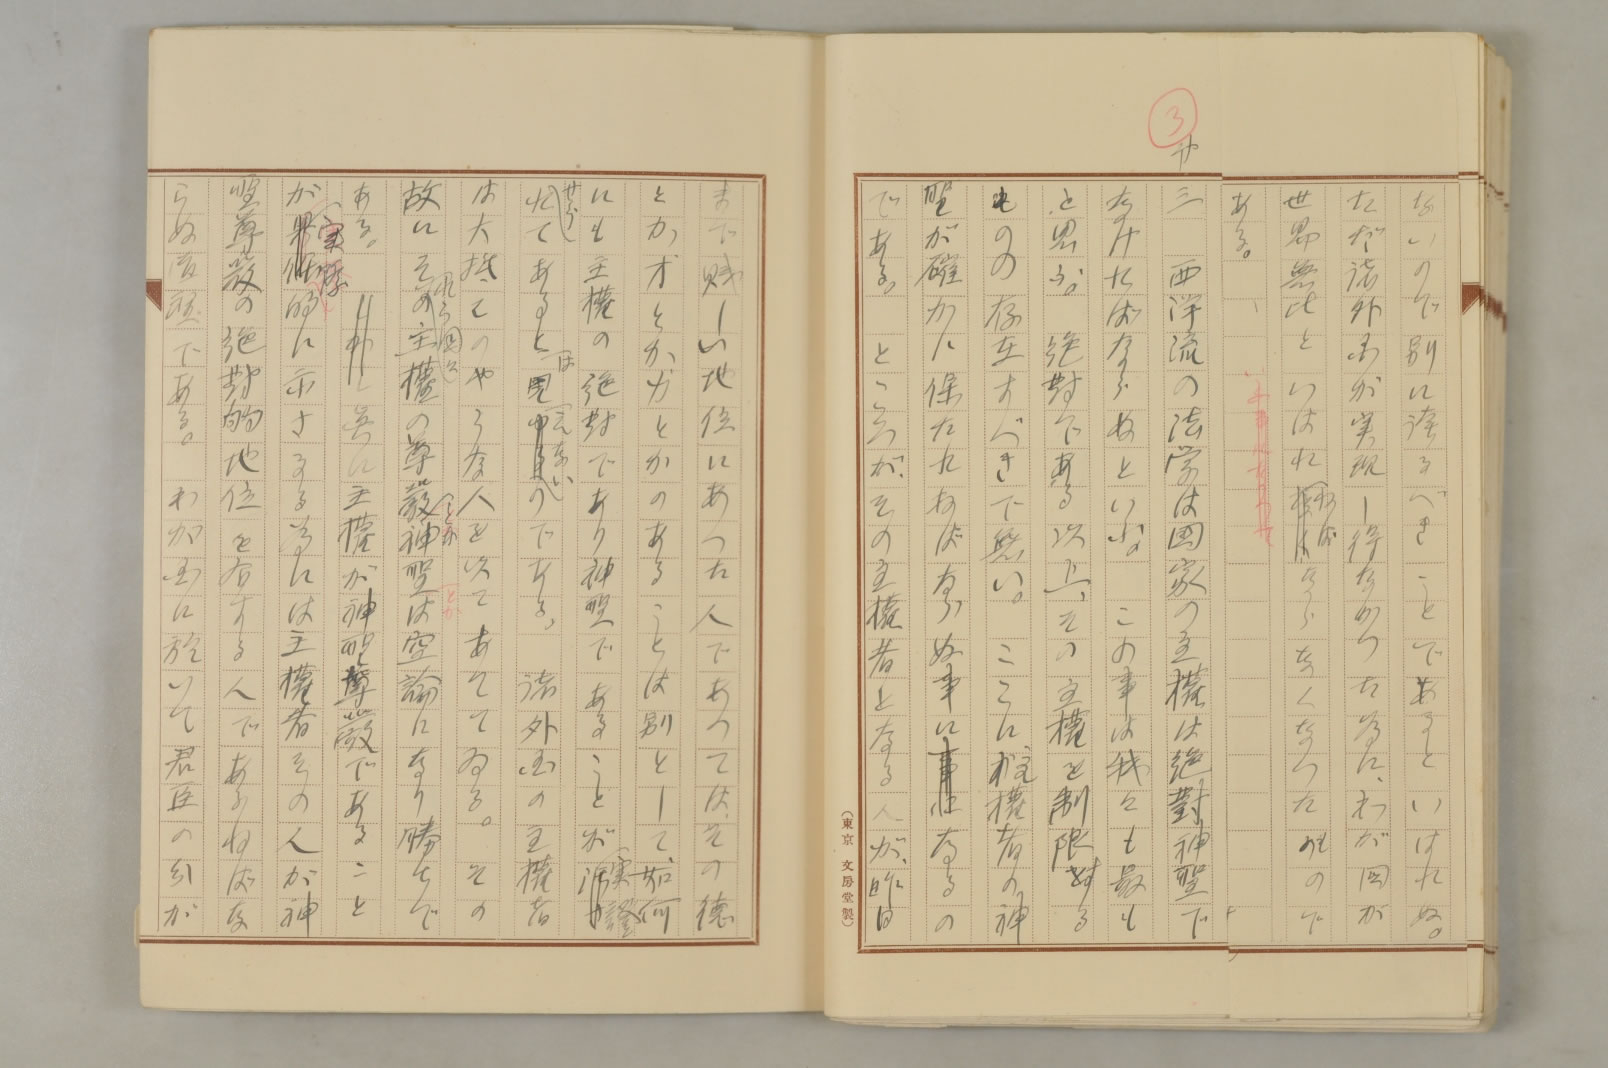 ないので別に誇るべきことであるといはれぬ。
ただ諸外国が実現し得なかつた為に、わが国が
世界無比といはれねばならなくなつたものゝ
ある。
③
三　西洋流の法学は国家の主権は絶對神聖で
なければならぬといふ。　この事は我々も最も
と思ふ。　絶対である以上、その主権を制限する
ものの存在すべきで無い。　ここに主権者の神
聖が確かに保たれねばならぬ事になるの
である、　ところが、その主権者となる人が、昨日
まで賎しい地位にあつた人であつては、その徳
とか才とか力とかのあることは別として、如何
にも主権の絶対であり神聖であることが実證
せられてあるとは見えないのである、　諸外国の主権者
は大抵このやうな人を以てあてゝゐる。　その
故に其らの国々の主権の尊厳とか神聖とかは空論になり勝ちで
ある。　主権が神聖尊厳であること
が実際的に示さるる為には主権者その人が神
聖尊厳の絶対的地位を有する人であらねばな
らぬ道理である。　わが国に於いて君臣の別が
（東京　文房堂製）